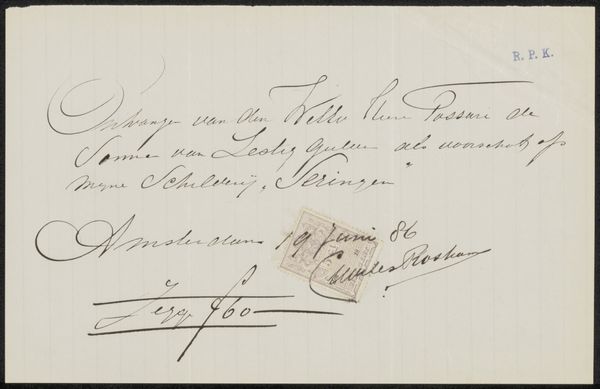 R. P. K.
Ontvangen van den WelEd Heer Possari de
Somma van Zestig Gulden als voorschot op
mijne Schilderij „Seringen"
Amsterdam 19 Juni 86
Charles Roskam
Zegge f 60